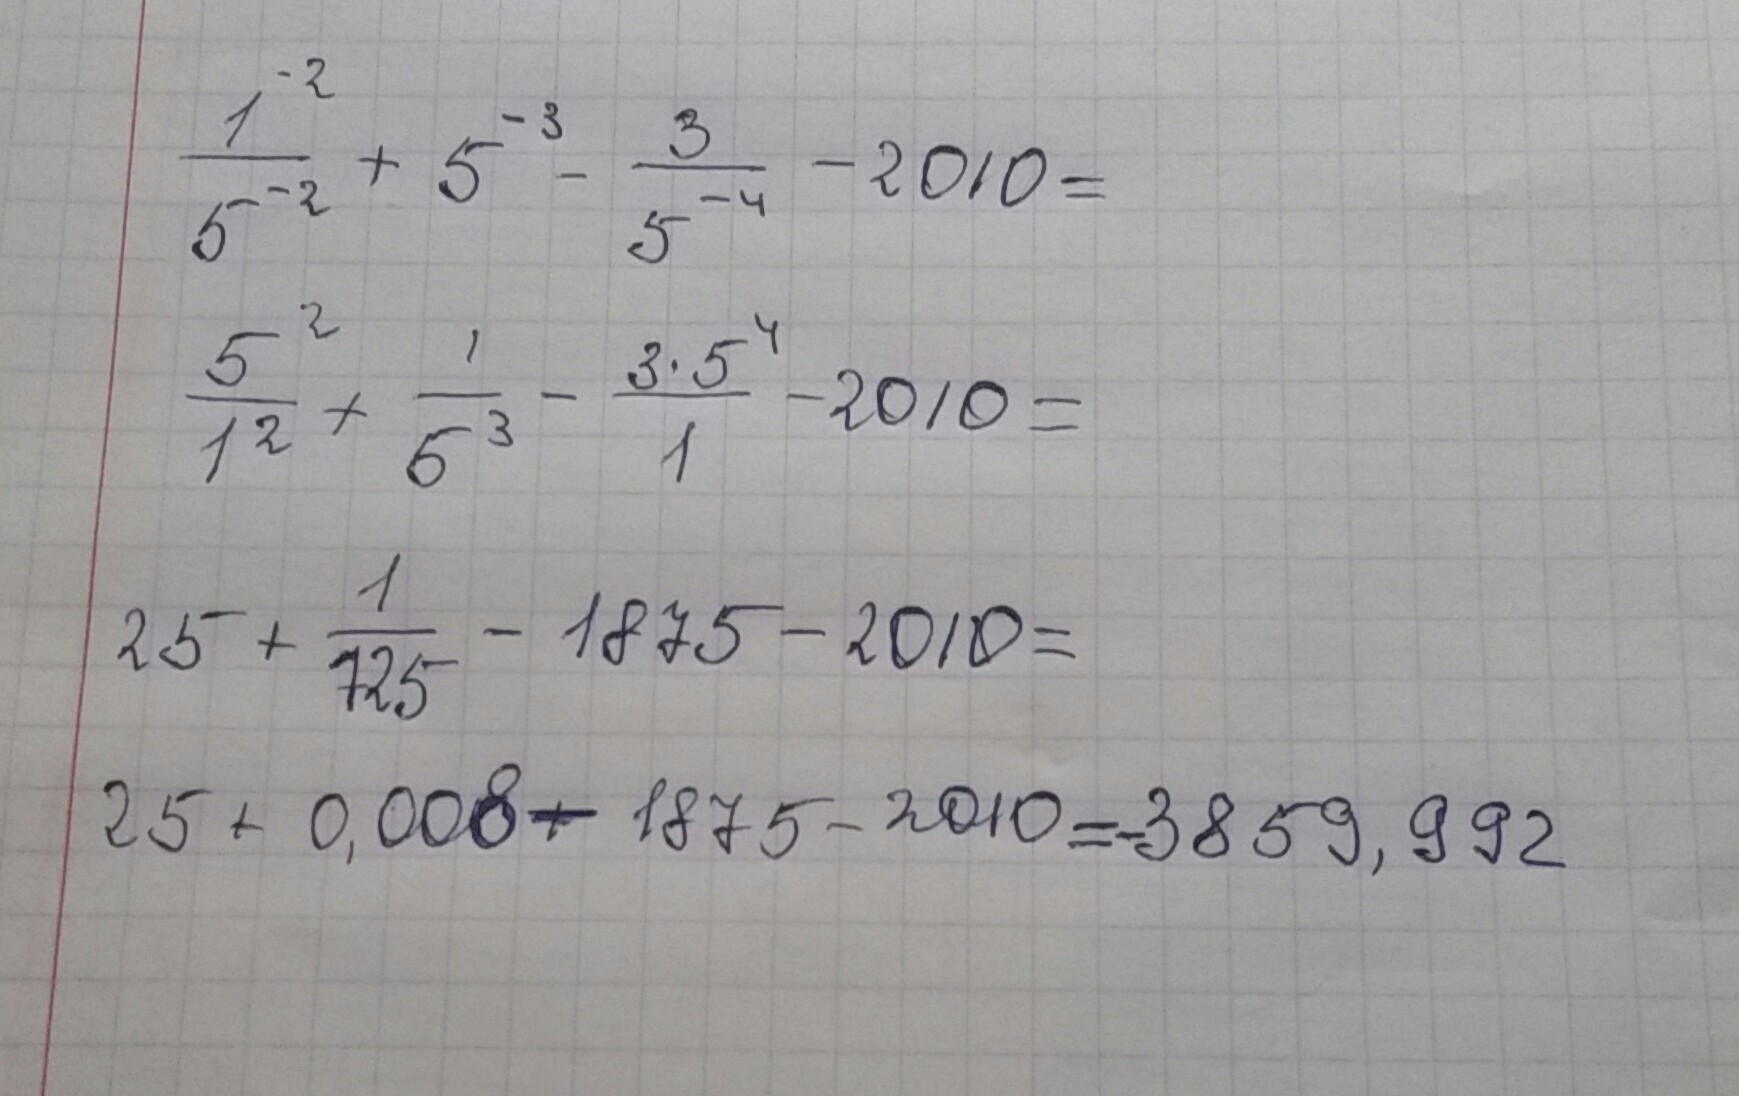 1^-2/5^-2 + 5^-3 - 3/5^-4 - 2010 =
5^2/1^2 + 1/5^3 - 3·5^4/1 - 2010 =
25 + 1/125 - 1875 - 2010 =
25 + 0,008 - 1875 - 2010 = -3859,992